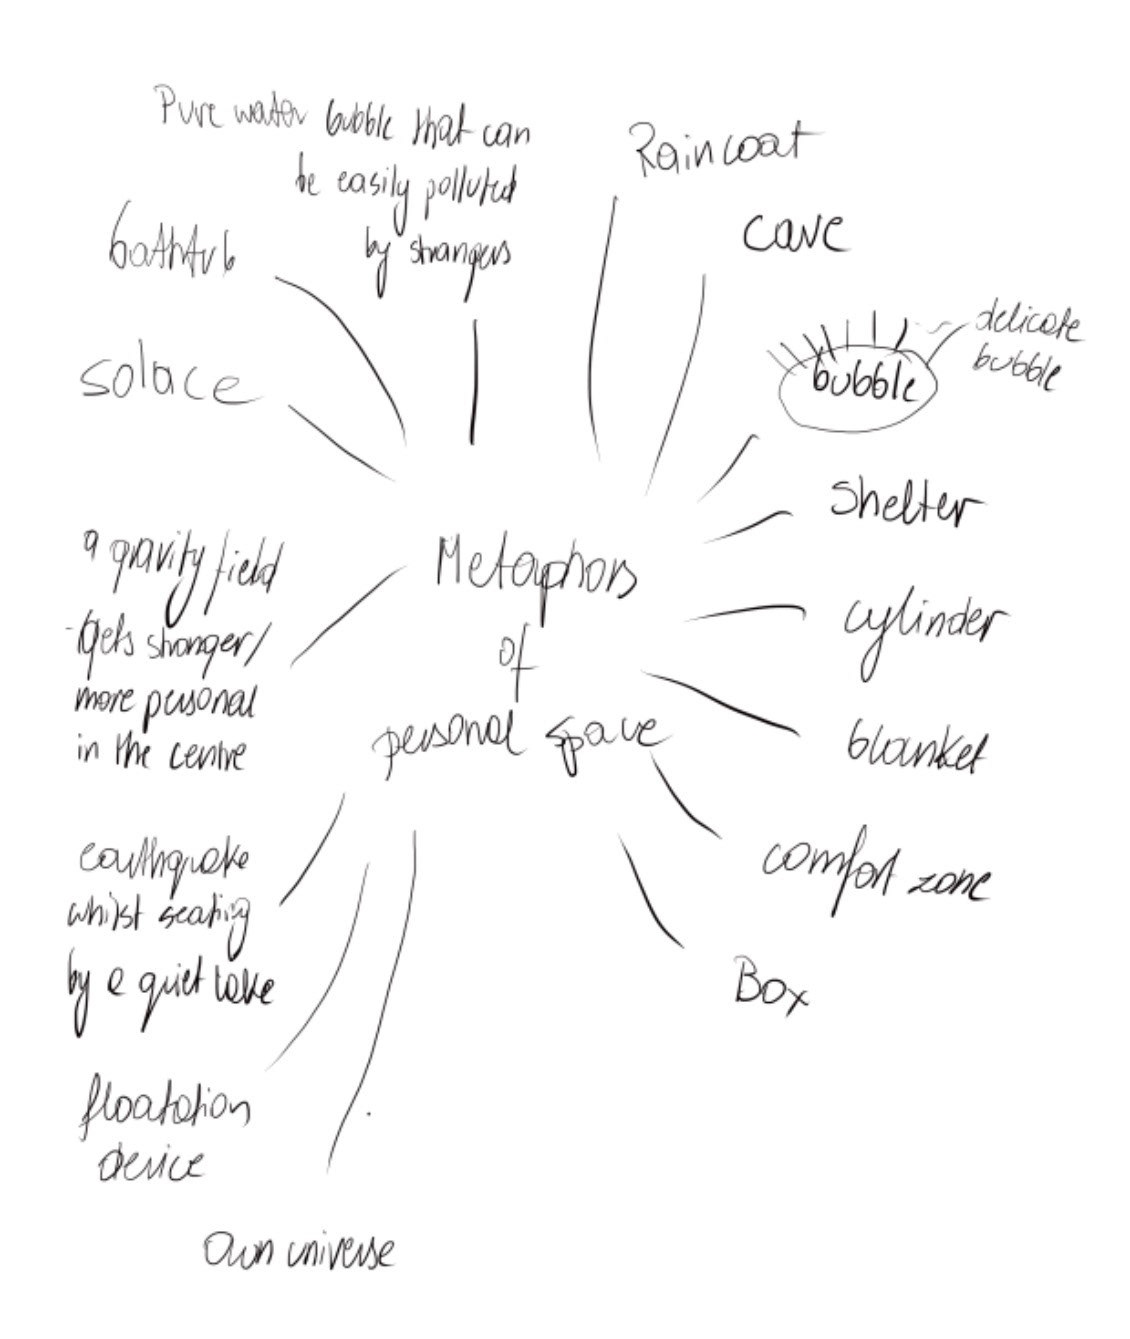 Pure water bubble that can
be easily polluted
by strangers
Raincoat
cave
bathtub
delicate
bubble
bubble
solace
shelter
a gravity field
-gets stronger/
more personal
in the centre
Metaphors
of
personal space
cylinder
blanket
comfort zone
Box
earthquake
whilst seating
by a quiet lake
floatation
device
Own universe